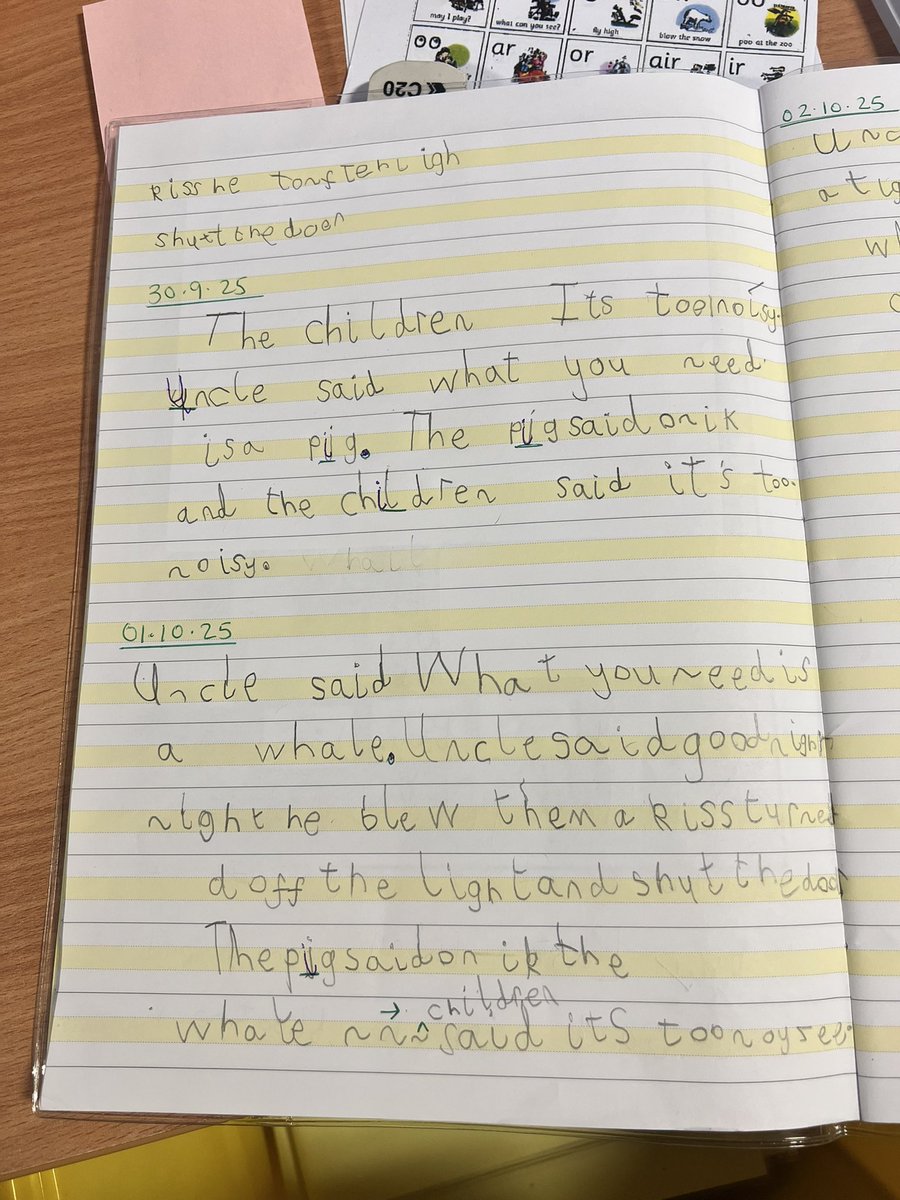 may I play?
what can you see?
fly high
blow the snow
poo at the zoo
oo
ar
or
air
ir
C20
Kiss he
shut the door
30.9.25
The children Its too noisy.
Uncle said what you need
is a pig. The pig said onik
and the children said it's too
noisy. What
01.10.25
Uncle said What you need is
a whale. Uncle said good night
night he blew them a kiss turned
d off the light and shut the door
The pig said on ik the
whale children
nnn said its too noysee
02.10.25
Unc
a tig
wh